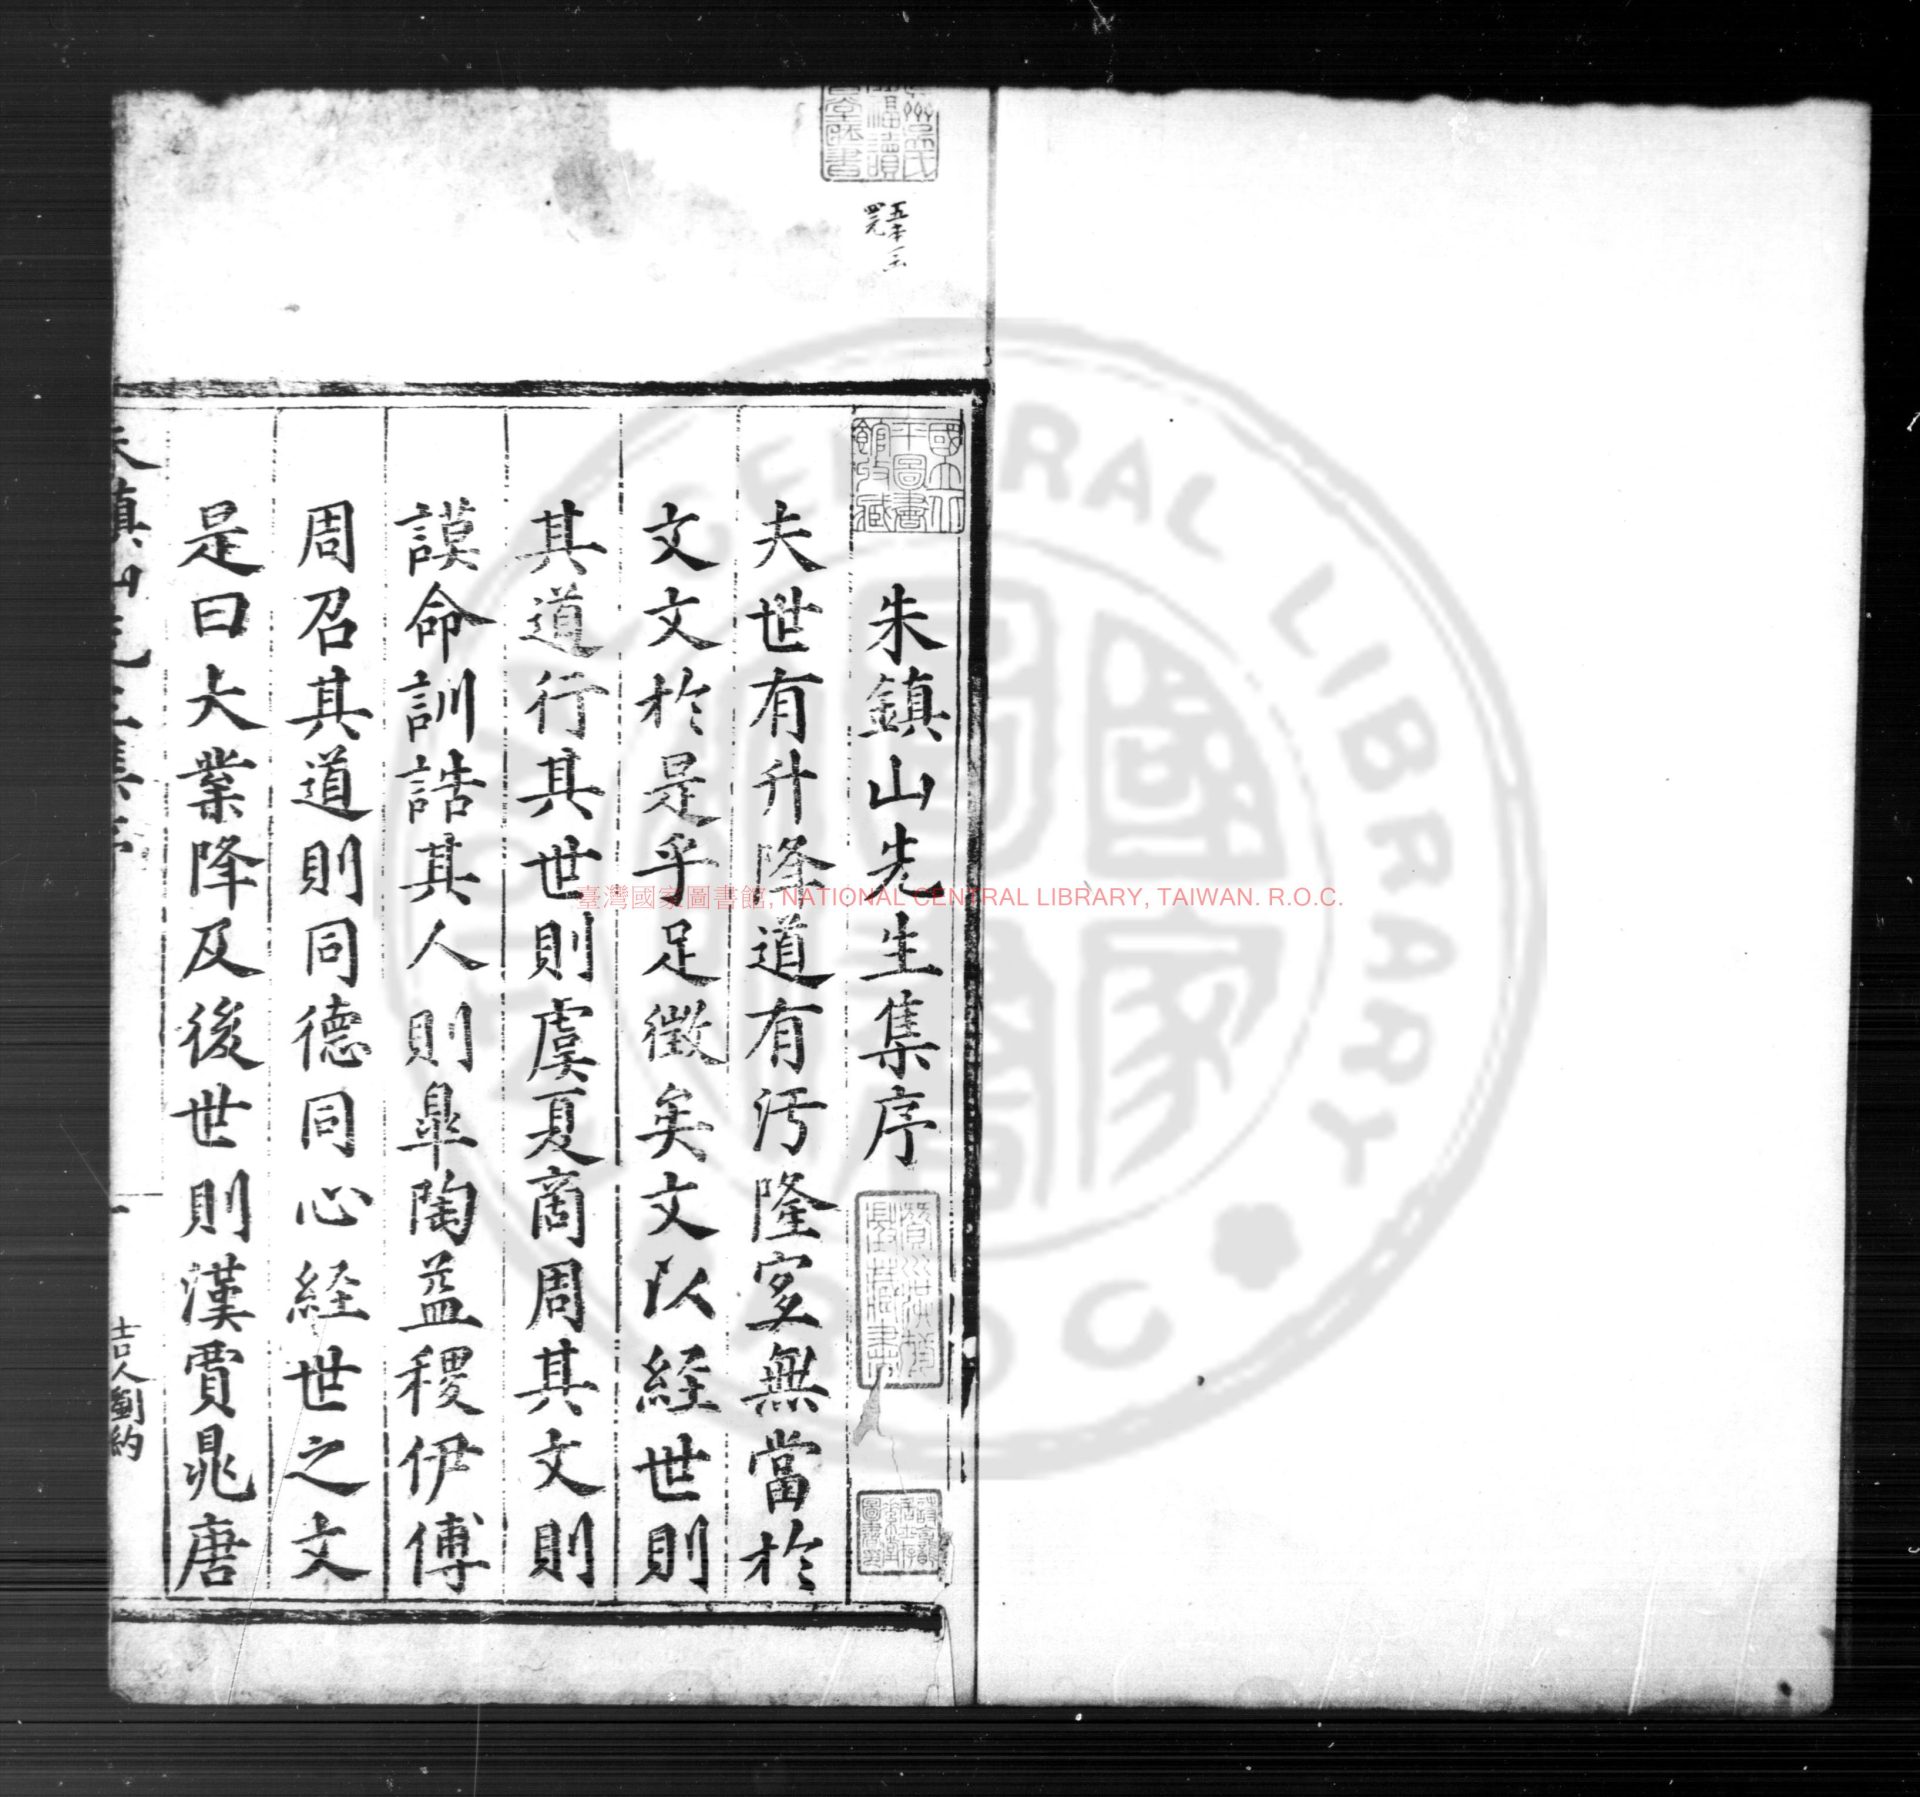 朱鎮山先生集序
夫世有升降道有汚隆寔無當於
文文於是乎足徵矣文以経世則
其道行其世則虞夏商周其文則
謨命訓誥其人則臯陶益稷伊傅
周召其道則同德同心経世之文
是曰大業降及後世則漢賈鼂唐
朱鎮山先生集序
一
吉人劉約
國立北平圖書館收藏
臺灣國家圖書館, NATIONAL CENTRAL LIBRARY, TAIWAN. R.O.C.
CENTRAL LIBRARY